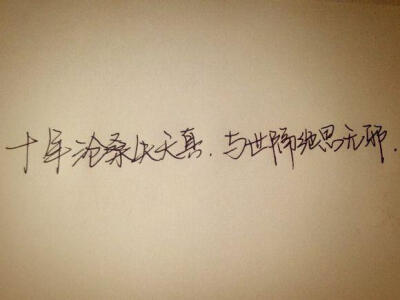 十年沧桑失天真.与世隔绝思无邪.